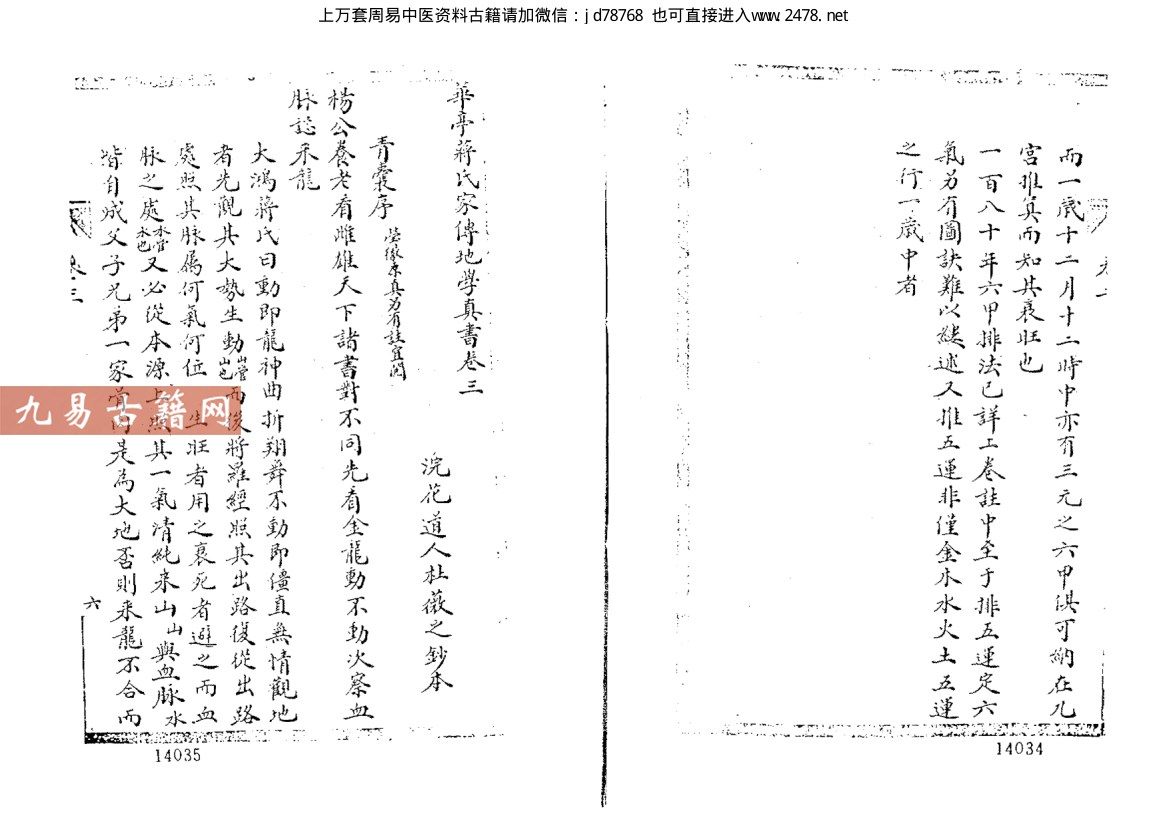 上万套周易中医资料古籍请加微信：jd78768 也可直接进入www.2478.net
而一歲十二月十二時中亦有三元之六甲俱可納在九
宮推算而知其衰旺也
一百八十年六甲排法已詳上卷註中至于排五運定六
氣另有圖訣難以縷述又推五運非僅金木水火土五運
之行一歲中者
14034
華亭蔣氏家傳地學真書卷三
浣花道人杜薇之鈔本
青囊序
真另有註宜閱
楊公養老看雌雄天下諸書對不同先看金龍動不動次察血
脉認來龍
大鴻蔣氏曰動即龍神曲折翔舞不動即僵直無情觀地
者先觀其大勢生動山管山也而後將羅經照其出路復從出路
處照其脉屬何氣何位 生旺者用之衰死者避之而血
脉之處水管水也又必從本源上照其一氣清純來山山與血脉水
皆自成父子兄弟一家骨肉是為大地否則來龍不合而
卷三
六
14035
九易古籍网